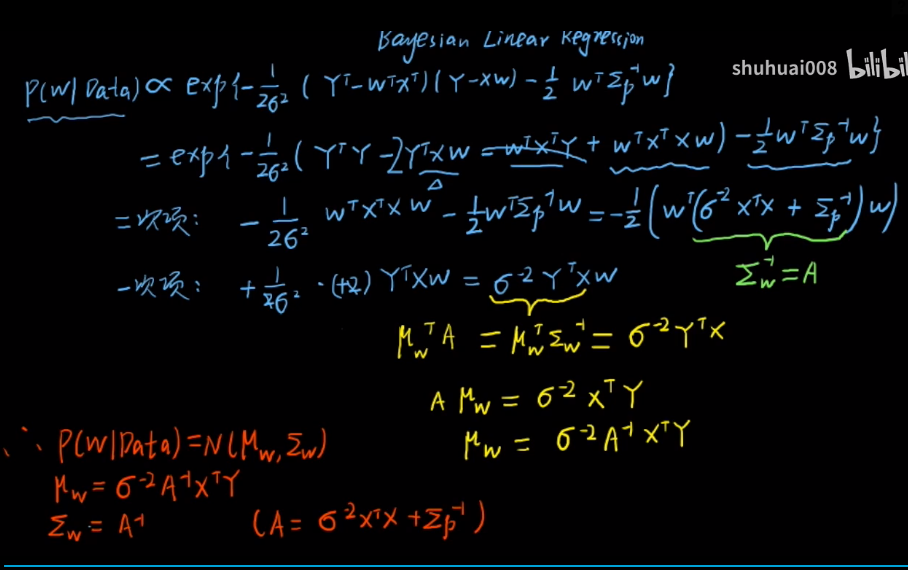 Bayesian Linear Regression
shuhuai008 bilibili
P(w|Data) ∝ exp{-1/2σ² (Yᵀ-wᵀxᵀ)(Y-xw) - 1/2 wᵀΣp⁻¹w}
= exp{-1/2σ² (YᵀY - 2YᵀXw - wᵀxᵀY + wᵀxᵀxw) - 1/2 wᵀΣp⁻¹w}
△
二次项: -1/2σ² wᵀxᵀxw - 1/2 wᵀΣp⁻¹w = -1/2 (wᵀ(σ⁻²xᵀx + Σp⁻¹)w)
Σw⁻¹ = A
一次项: +1/2σ² · (+2) YᵀXw = σ⁻²YᵀXw
μwᵀA = μwᵀΣw⁻¹ = σ⁻²YᵀX
Aμw = σ⁻²XᵀY
μw = σ⁻²A⁻¹XᵀY
∴ P(w|Data) = N(μw, Σw)
μw = σ⁻²A⁻¹XᵀY
Σw = A⁻¹ (A = σ⁻²XᵀX + Σp⁻¹)